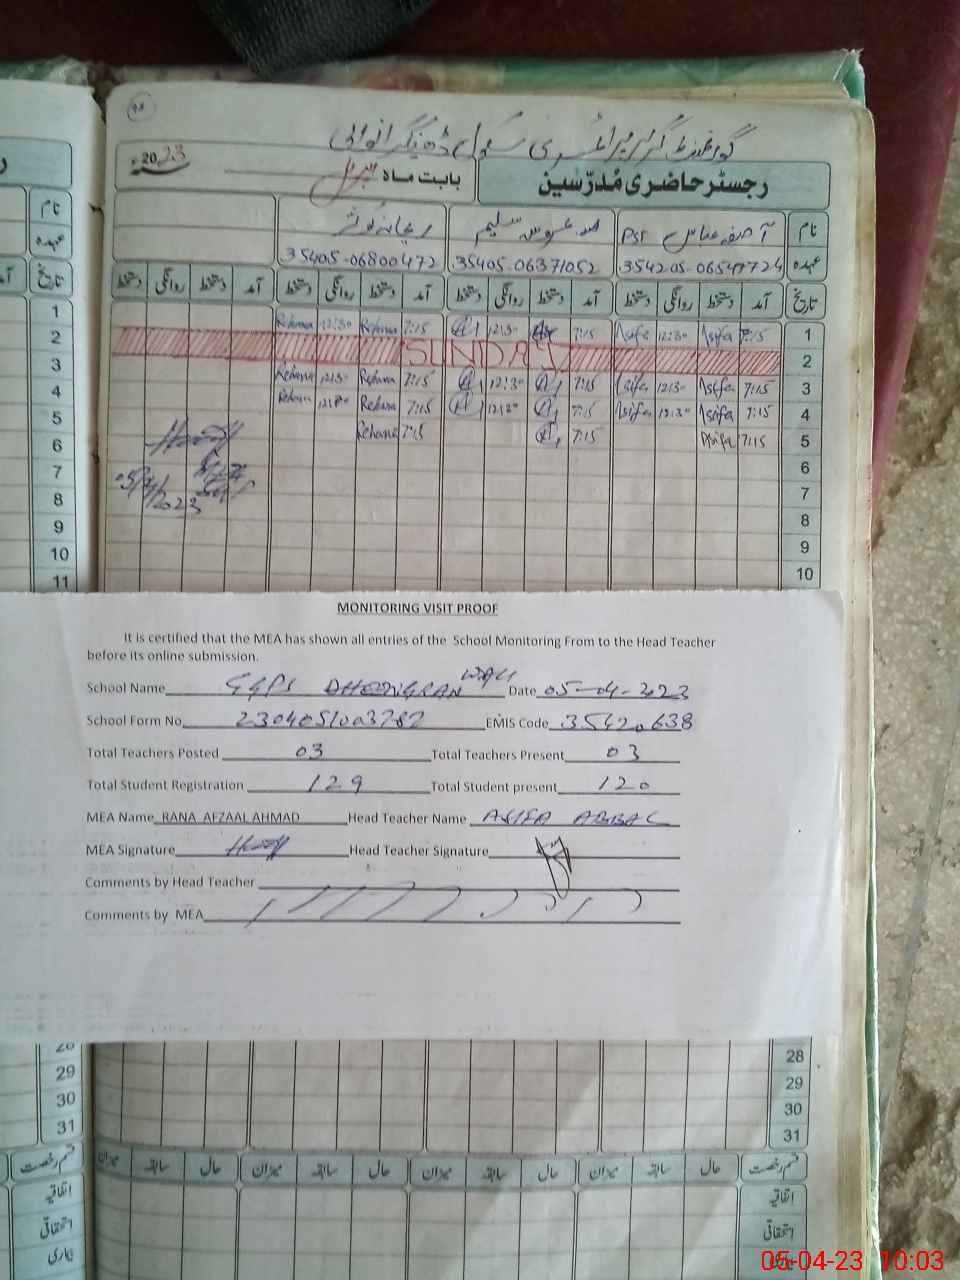 گورنمنٹ گرلز پرائمری سکول ڈھینگرانوالی
رجسٹر حاضری مُدرّسین
بابت ماہ اپریل
2023
نام
آصفہ عباس PST
سلیم
ریحانہ کوثر
عہدہ
35405-06371052
35405-06800472
تاریخ آمد دستخط روانگی دستخط آمد دستخط روانگی دستخط آمد دستخط روانگی دستخط آمد دستخط روانگی دستخط
1 7:15 Asifa 12:30 Asifa 7:15 12:30 7:15 Rehana 12:30 Rehana 1
2 SUNDAY 2
3 7:15 Asifa 12:30 Asifa 7:15 12:30 7:15 Rehana 12:30 Rehana 3
4 7:15 Asifa 12:30 Asifa 7:15 12:30 7:15 Rehana 12:30 Rehana 4
5 7:15 Asifa 7:15 7:15 Rehana 5
6 6
7 7
8 8
9 9
10 10
11
05/4/2023
MONITORING VISIT PROOF
It is certified that the MEA has shown all entries of the School Monitoring From to the Head Teacher
before its online submission.
School Name GGPS DHEENGRAN WALI Date 05-04-2023
School Form No 2304051003782 EMIS Code 35420638
Total Teachers Posted 03 Total Teachers Present 03
Total Student Registration 129 Total Student present 120
MEA Name RANA AFZAAL AHMAD Head Teacher Name ASIFA ABBAS
MEA Signature Head Teacher Signature
Comments by Head Teacher
Comments by MEA
28
29 29
30 30
31 31
قسم رخصت حال سابقہ میزان حال سابقہ میزان حال سابقہ میزان حال سابقہ میزان
اتفاقیہ
استحقاقی
بیماری
05-04-23 10:03